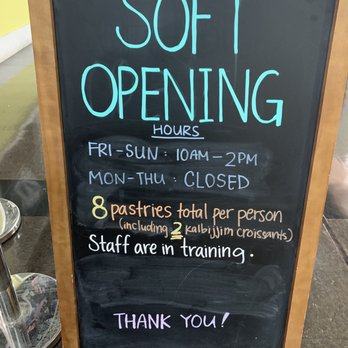 SOFT
OPENING
HOURS
FRI-SUN: 10AM-2PM
MON-THU: CLOSED
8 pastries total per person
(including 2 kalbijjim croissants)
Staff are in training.
THANK YOU!